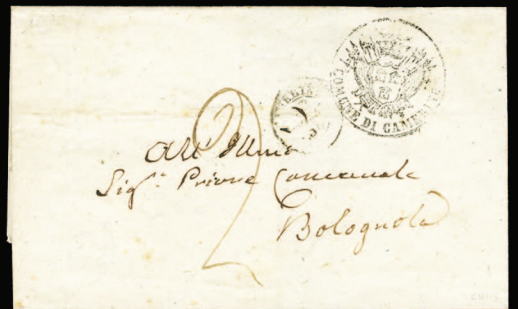 COMUNE DI CAMERINO
2
All' Illmo
Sig.r Priore Comunale
Bolognola